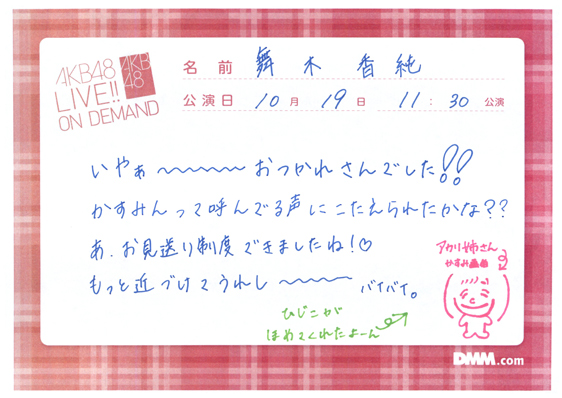 AKB48
LIVE!!
ON DEMAND
AKB
48
名前 舞木香純
公演日 10月19日 11:30公演
いやぁ〜〜〜〜〜おつかれさんでした!!
かすみんって呼んでる声にこたえられたかな??
あ、お見送り制度できましたね!♡
もっと近づけてうれし〜〜〜〜 バイバイ。
アカリ姉さん
かすみ
ひじこが
ほめてくれたよーん
DMM.com